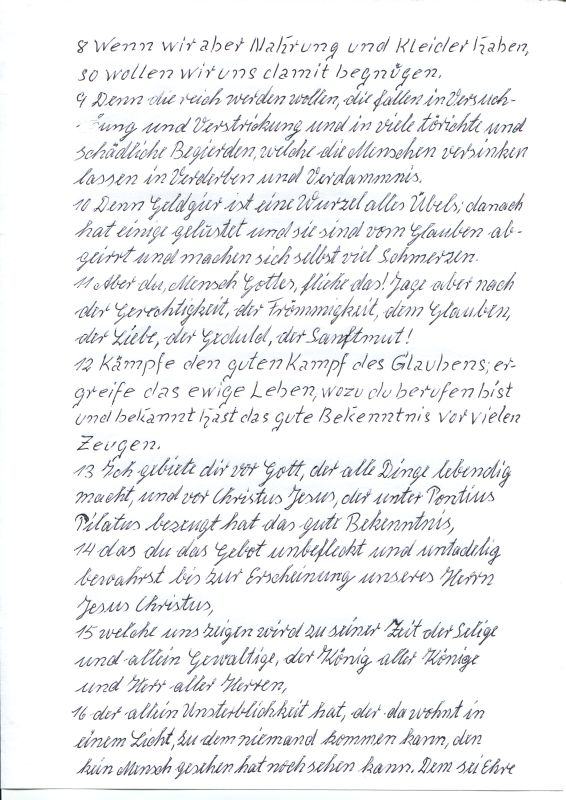 8 Wenn wir aber Nahrung und Kleider haben,
so wollen wir uns damit begnügen.
9 Denn die reich werden wollen, die fallen in Versuch-
ung und Verstrickung und in viele törichte und
schädliche Begierden, welche die Menschen versinken
lassen in Verderben und Verdammnis.
10 Denn Geldgier ist eine Wurzel alles Übels; danach
hat einige gelüstet und sie sind vom Glauben ab-
geirrt und machen sich selbst viel Schmerzen.
11 Aber du, Mensch Gottes, fliehe das! Jage aber nach
der Gerechtigkeit, der Frömmigkeit, dem Glauben,
der Liebe, der Geduld, der Sanftmut!
12 Kämpfe den guten Kampf des Glaubens; er-
greife das ewige Leben, wozu du berufen bist
und bekannt hast das gute Bekenntnis vor vielen
Zeugen.
13 Ich gebiete dir vor Gott, der alle Dinge lebendig
macht, und vor Christus Jesus, der unter Pontius
Pilatus bezeugt hat das gute Bekenntnis,
14 das du das Gebot unbefleckt und untadelig
bewahrst bis zur Erscheinung unseres Herrn
Jesus Christus,
15 welche uns zeigen wird zu seiner Zeit der Selige
und allein Gewaltige, der König aller Könige
und Herr aller Herren,
16 der allein Unsterblichkeit hat, der da wohnt in
einem Licht, zu dem niemand kommen kann, den
kein Mensch gesehen hat noch sehen kann. Dem sei Ehre